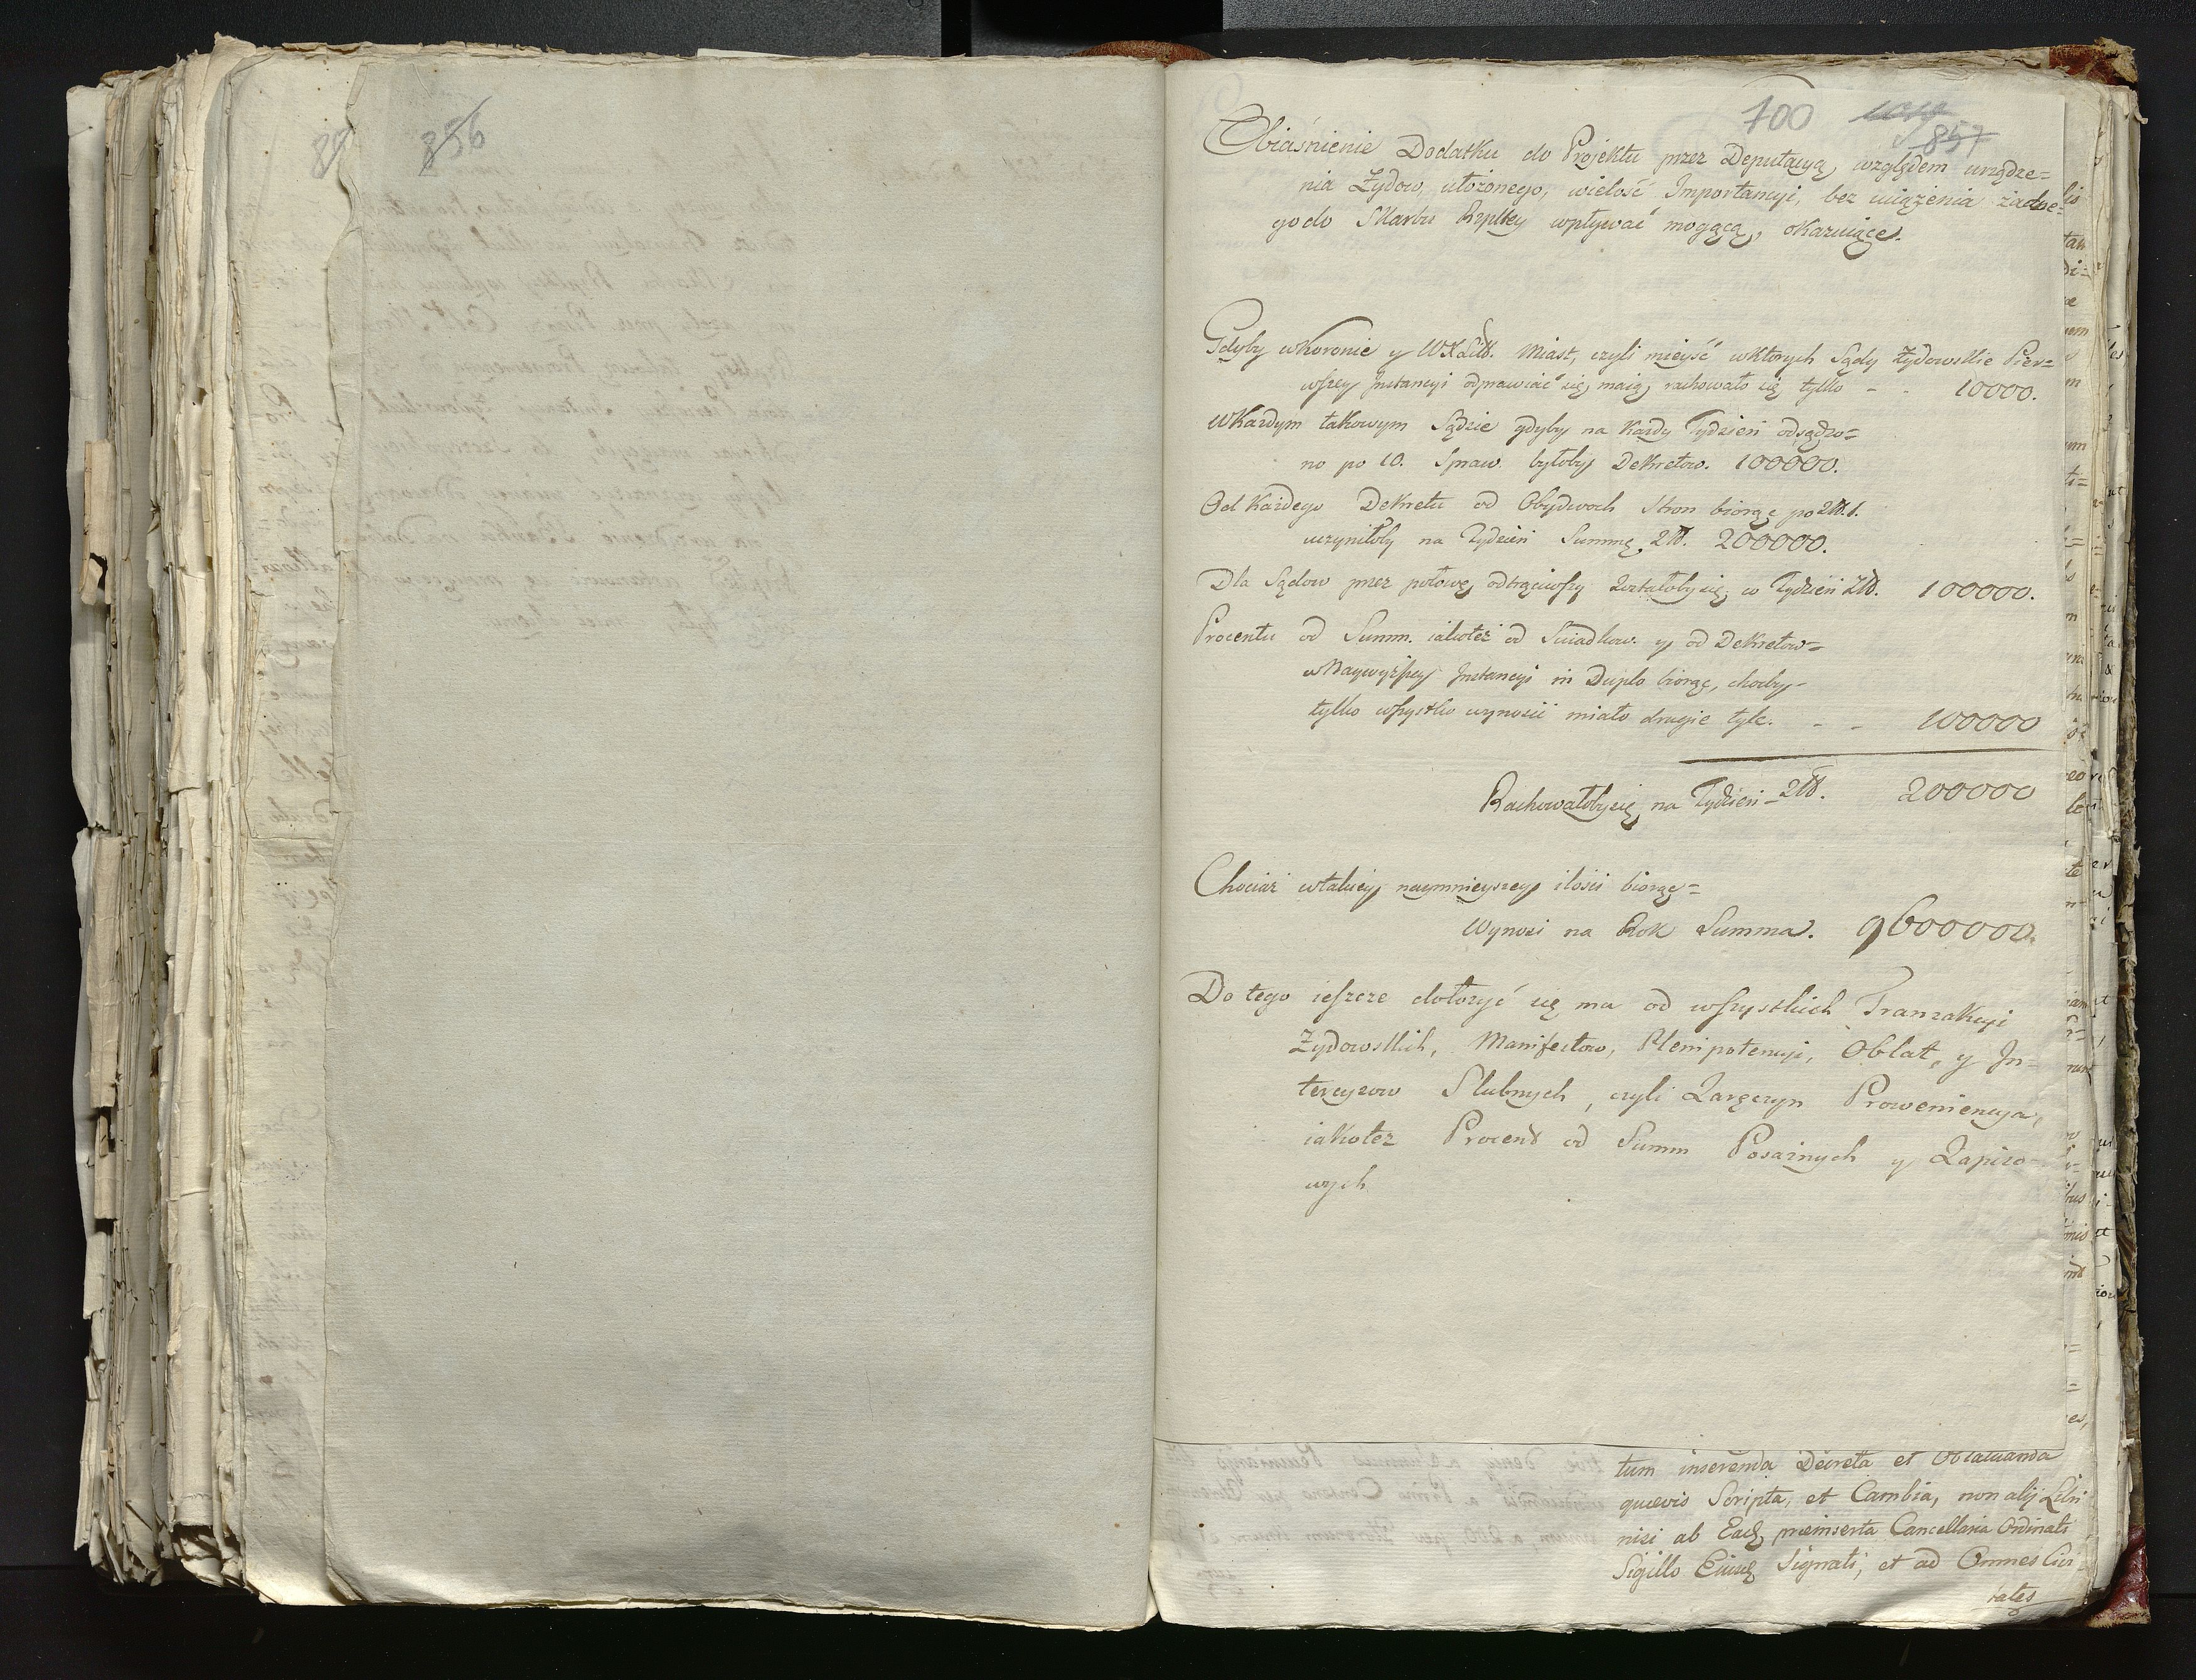 856
700
857
Obiaśnienie Dodatku do Projektu przez Deputacyą, względem urządze=
nia Zydow, ułożonego, wielość Importancyi, bez uciążenia żadne=
go do Skarbu Rzpltey wpływać mogącą, okazuiące.
Gdyby w Koronie y WXLitt. Miast, czyli mieysć w ktorych Sądy Żydowskie Pier=
wszey Instancyi odprawiać się maią, rachowało się tylko - - 10000.
W Kazdym takowym Sądzie gdyby na Kazdy Tydzień odsądzo=
no po 10. Spraw byłoby Dekretow. 100000.
Od Każdego Dekretu od Obydwoch Stron biorąc po Złł. 1.
uczyniłoby na Tydzień Summę Złł. 200000.
Dla Sądow przez połowę odtrąciwszy Zostałoby się w Tydzień Złł. 100000.
Procentu od Summ. iakoteż od Swiadkow. y od Dekretow=
w Naywyższey Instancyi in Duplo biorąc, choćby-
tylko wszystko wynosić miało drugie tyle. - - 100000
Rachowałoby się na Tydzień - Złł. 200000
Chociaż w takiey naymnieyszey ilości biorąc=
Wynosi na Rok Summa. 9600000.
Do tego ieszcze dołożyć się ma od wszystkich Tranzakcyi
Zydowskich, Manifestow, Plenipotencyi, Oblat, y In=
tercyzow Slubnych, czyli Zaręczyn Proweniencya,
iakotez Procent od Summ Posażnych y Zapiso-
wych
tum inserenda Decreta et Oblatuanda
quaevis Scripta, et Cambia, non alij Libri
nisi ab Ead, praeinserta Cancellaria Ordinati
Sigillo Eiusd Signati, et ad Omnes Civi=
tates